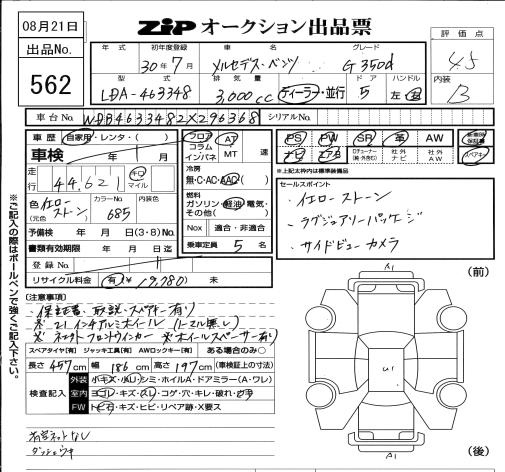 08月21日
ZIP オークション出品票
評価点
4.5
出品No.
562
年式
初年度登録
30年7月
車名
メルセデス・ベンツ
グレード
G350d
型式
LDA-463348
排気量
3,000cc
ディーラー・並行
ドア
5
ハンドル
左・右
内装
B
車台No.
WDB4633482X296368
シリアルNo.
車歴 自家用・レンタ・( )
車検 年 月
フロア
コラム
インパネ
AT
MT
速
PS PW SR 革 AW
ナビ エアB Dチューナー(純・外含む) 社外ナビ 社外AW
新車時保証書
スペアキー
※上記太枠内は標準装備
走行
44,621
キロ
マイル
冷房
無・C・AC・AAC
燃料
ガソリン・軽油・電気・
その他( )
Nox 適合・非適合
乗車定員 5 名
色(元色)
イエローストーン
カラーNo.
685
内装色
予備検 年 月 日(3・8)No.
書類有効期限 年 月 日迄
登録No.
リサイクル料金 有(¥19,780) 未
セールスポイント
・イエローストーン
・ラグジュアリーパッケージ
・サイドビューカメラ
※ご記入の際はボールペンで強くご記入下さい。
(注意事項)
・保証書・取説・スペアキー有り
※21インチアルミホイール(ノーマル無し)
※ネックトフロントウインカー ※ホイールスペーサー有り
スペアタイヤ(有) ジャッキ工具(有) AWロックキー(有) ある場合のみ○
長さ 457cm 幅 186cm 高さ 197cm (車検証上の寸法)
検査記入
外装 小キズ・小U・シミ・ホイルA・ドアミラー(A・ワレ)
室内 ヨゴレ・キズ・スレ・コゲ・穴・キレ・破れ・ウキ
FW トビ石・キズ・ヒビ・リペア跡・X要ス
ダッシュウキ
(前)
A1
U1
A1
(後)